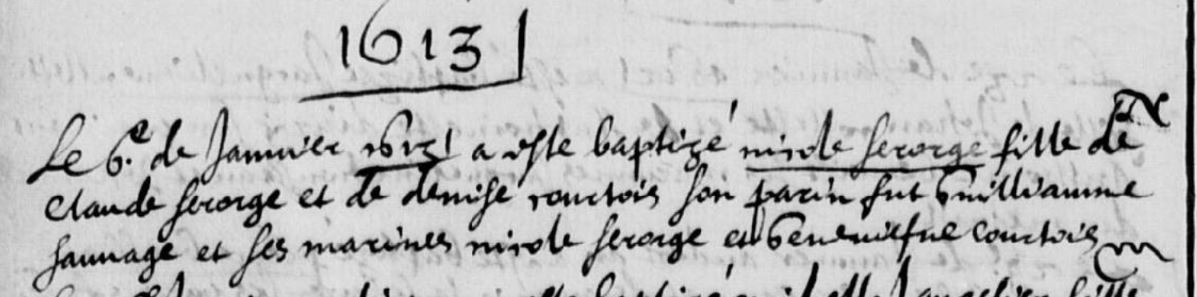 1613
Le 6.e de Januier 1613 a este baptizé nicole ferorge fille de
Claude ferorge et de denise courtois son parin fut Guilliaume
sauuage et ses marines nicole ferorge et Geneuiefue Courtois